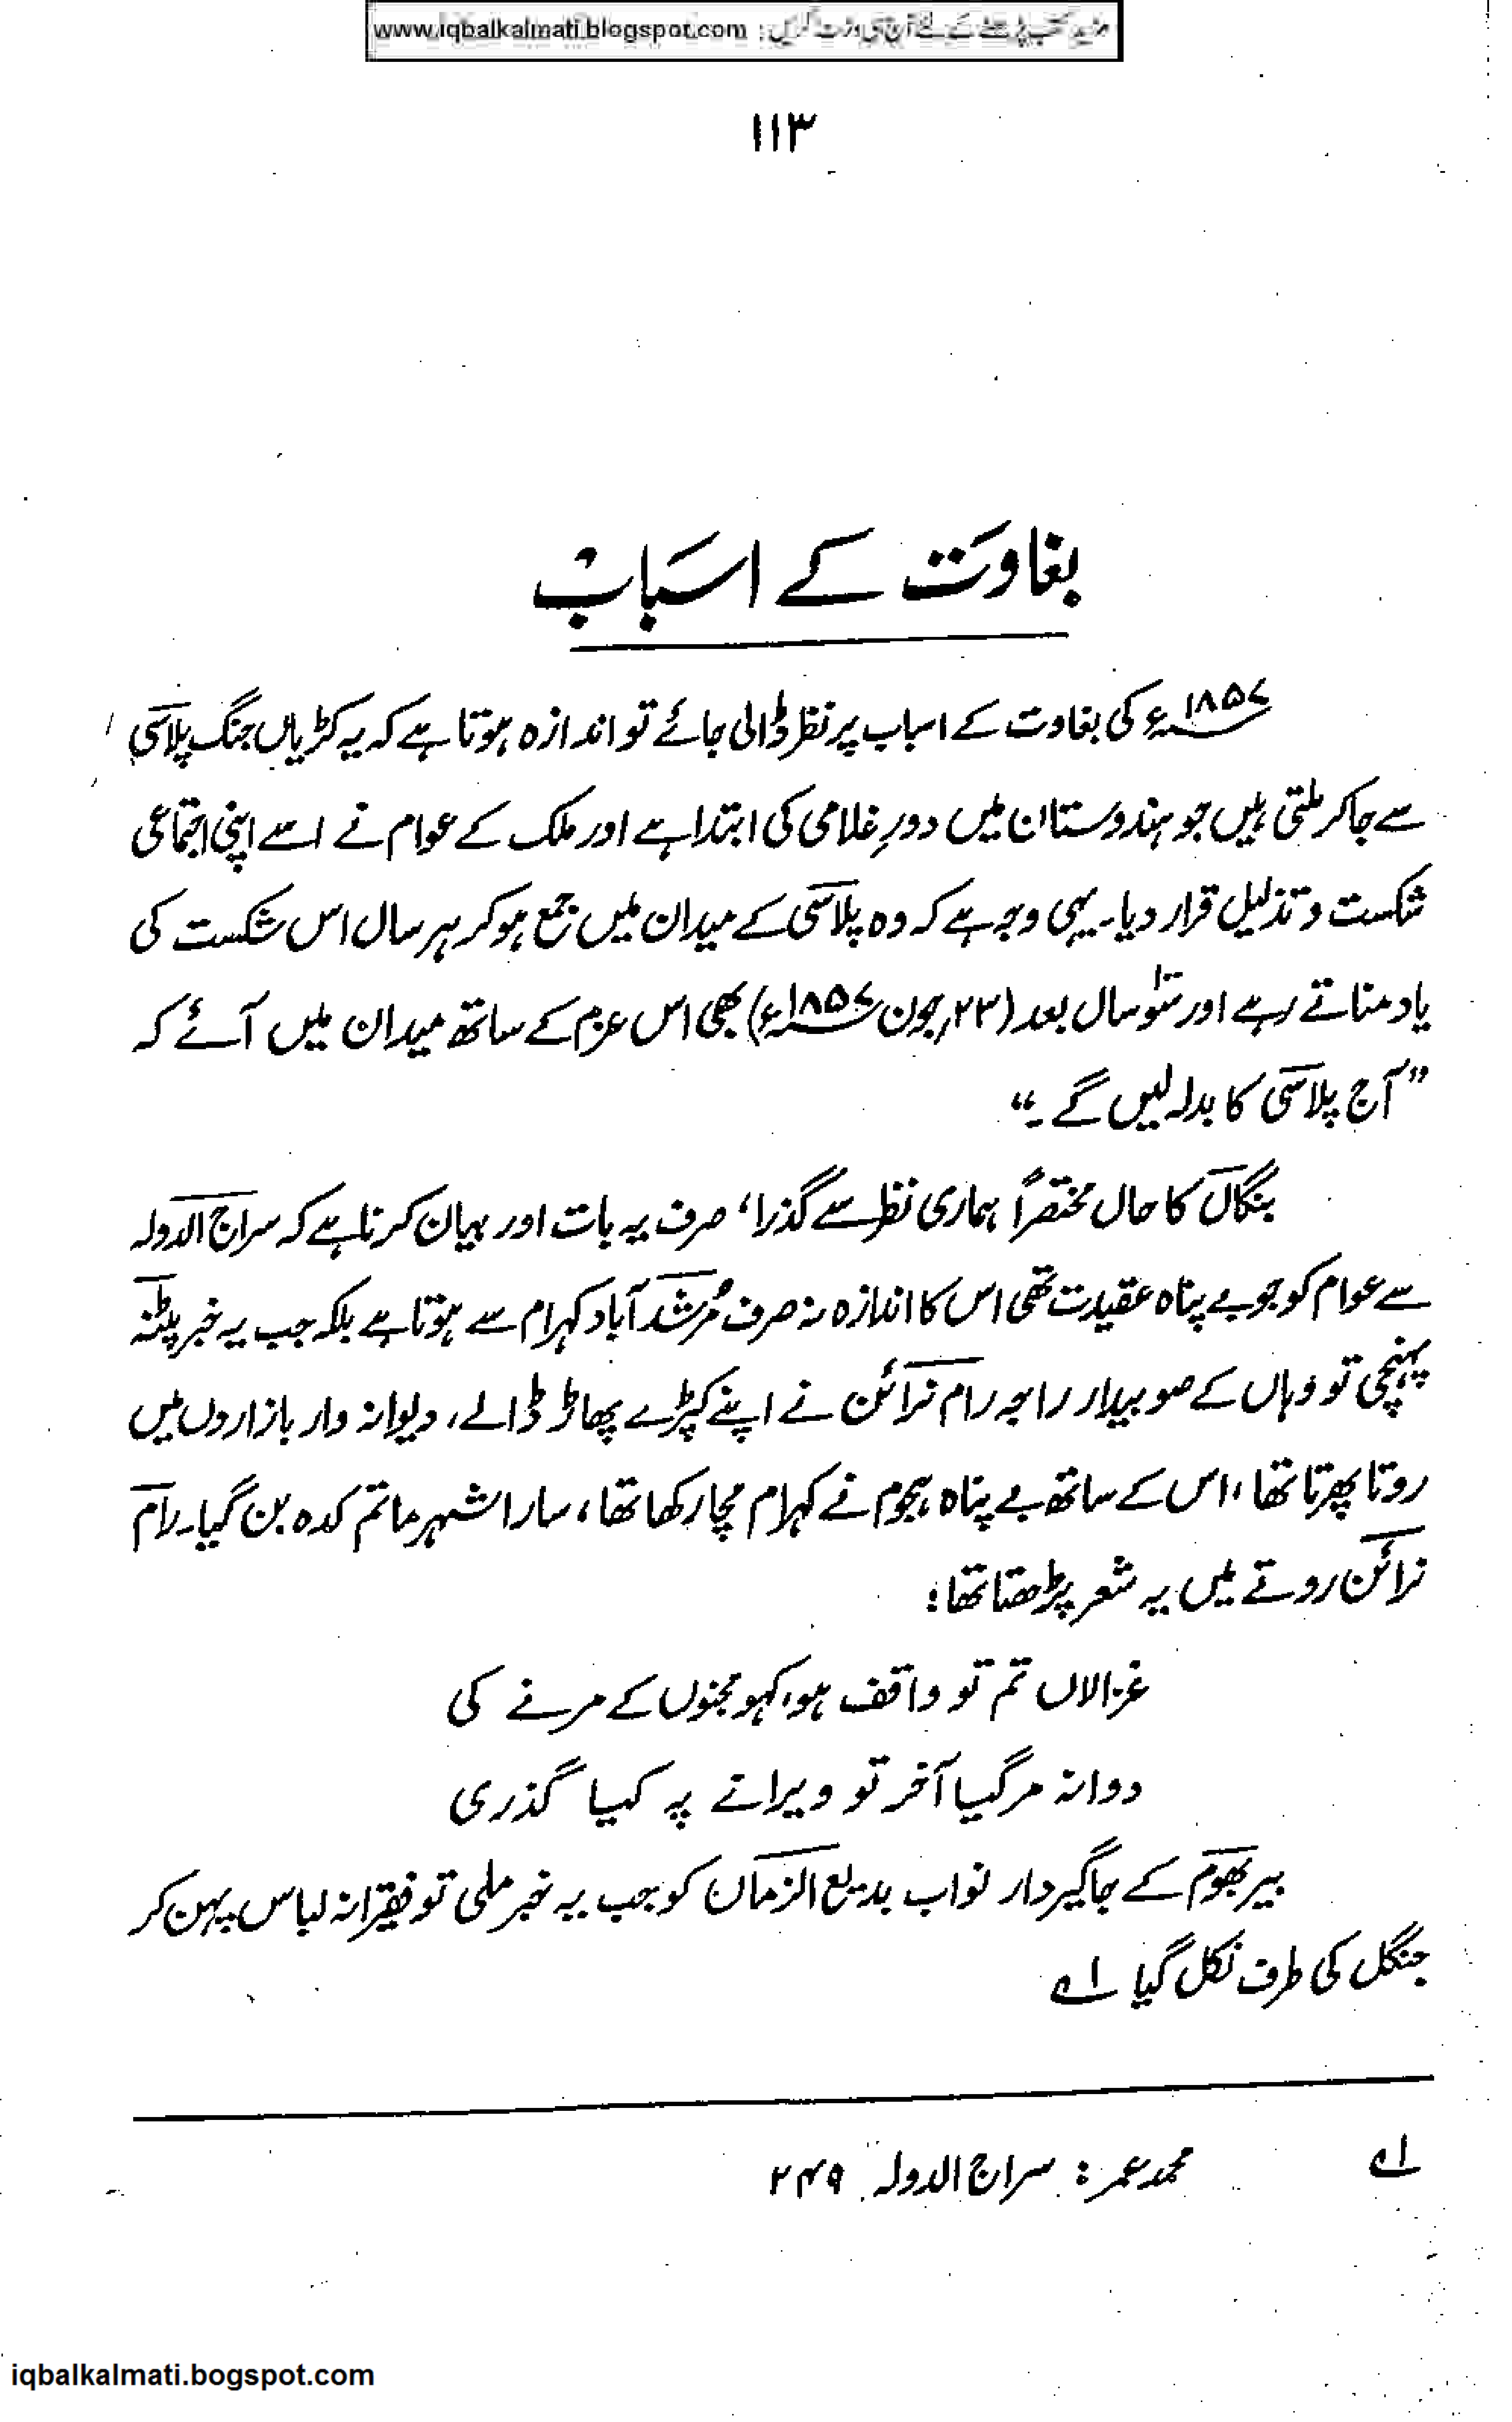 مزید کتب پڑھنے کے لئے آج ہی وزٹ کریں : www.iqbalkalmati.blogspot.com
۱۱۳
بغاوت کے اسباب
۱۸۵۷ء کی بغاوت کے اسباب پر نظر ڈالی جائے تو اندازہ ہوتا ہے کہ یہ کڑیاں جنگ پلاسی
سے جا کر ملتی ہیں جو ہندوستان میں دورِ غلامی کی ابتدا ہے اور ملک کے عوام نے اسے اپنی اجتماعی
شکست و تذلیل قرار دیا۔ یہی وجہ ہے کہ وہ پلاسی کے میدان میں جمع ہو کر ہر سال اس شکست کی
یاد مناتے رہے اور سو سال بعد (۲۳؍جون ۱۸۵۷ء) بھی اس عزم کے ساتھ میدان میں آئے کہ
”آج پلاسی کا بدلہ لیں گے۔“
بنگال کا حال مختصراً ہماری نظر سے گذرا، صرف یہ بات اور بیان کرنا ہے کہ سراج الدولہ
سے عوام کو جو بے پناہ عقیدت تھی اس کا اندازہ نہ صرف مُرشد آباد کہرام سے ہوتا ہے بلکہ جب یہ خبر پٹنہ
پہنچی تو وہاں کے صوبیدار راجہ رام نرائن نے اپنے کپڑے پھاڑ ڈالے، دیوانہ وار بازاروں میں
روتا پھرتا تھا، اس کے ساتھ بے پناہ ہجوم نے کہرام مچا رکھا تھا، سارا شہر ماتم کدہ بن گیا۔ رام
نرائن روتے میں یہ شعر پڑھتا تھا:
غزالاں تم تو واقف ہو، کہو مجنوں کے مرنے کی
دوانہ مر گیا آخر تو ویرانے پہ کیا گذری
بیربھوم کے جاگیردار نواب بدیع الزمان کو جب یہ خبر ملی تو فقیرانہ لباس پہن کر
جنگل کی طرف نکل گیا ۱؎
۱؎ محمد عمر: سراج الدولہ ۲۴۹
iqbalkalmati.bogspot.com